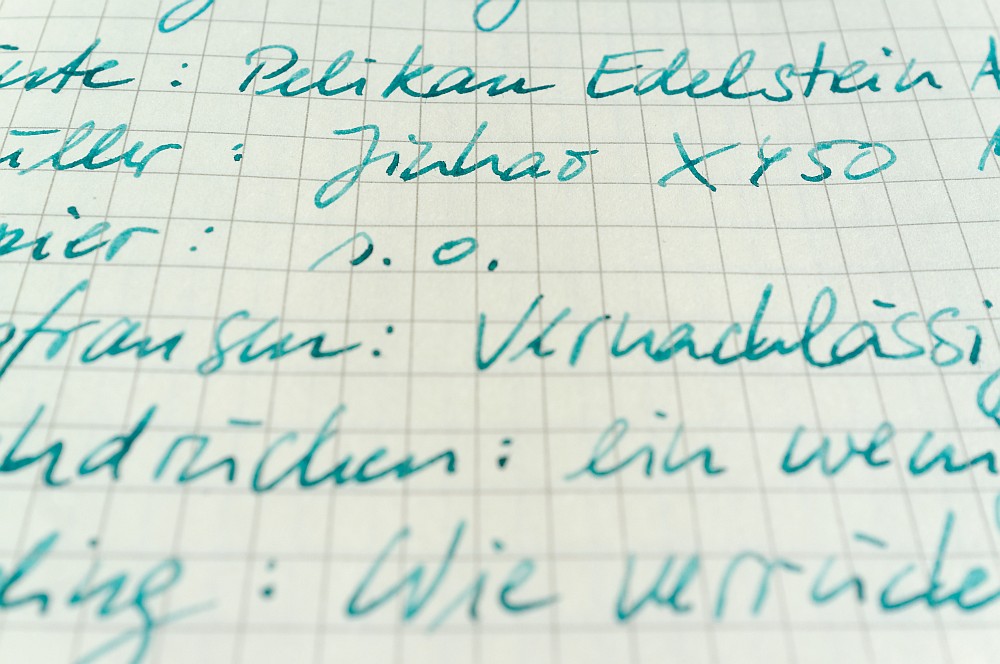 inte : Pelikan Edelstein A
üller : Jinhao X450
pier : s. o.
sfransen: Vernachlässi
hdrücken : ein weni
ding : Wie verrückt